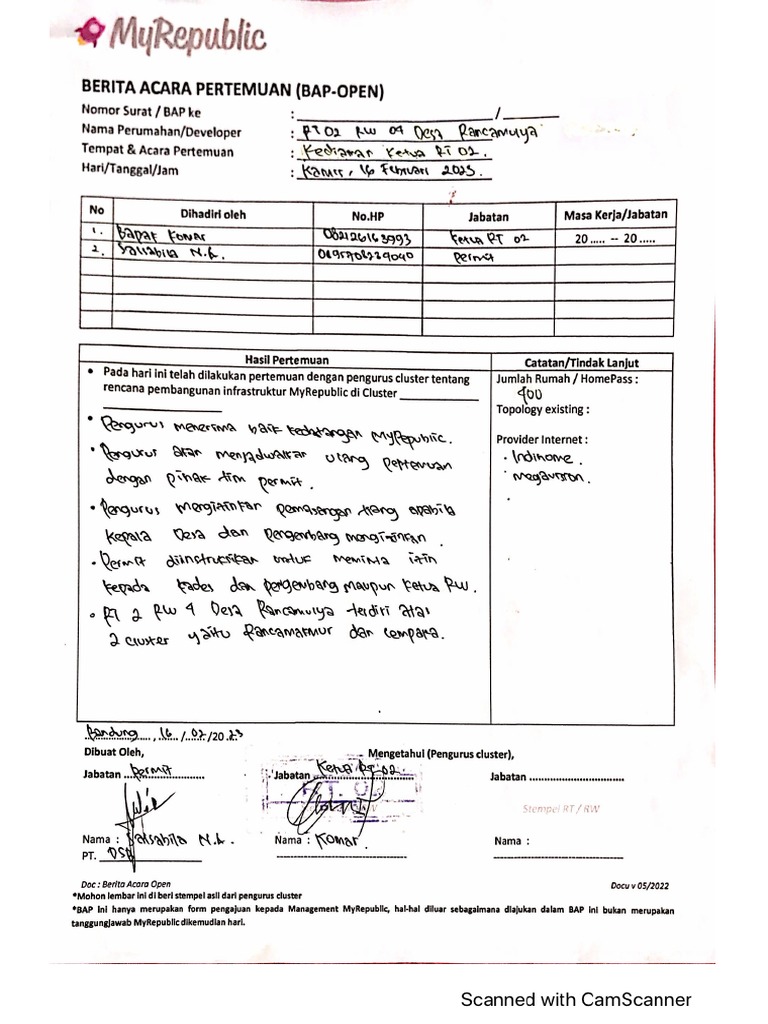 MyRepublic
BERITA ACARA PERTEMUAN (BAP-OPEN)
Nomor Surat / BAP ke : /
Nama Perumahan/Developer : RT 02 RW 04 Desa Rancamulya
Tempat & Acara Pertemuan : Kediaman Ketua RT 02.
Hari/Tanggal/Jam : Kamis, 16 Februari 2023
No Dihadiri oleh No.HP Jabatan Masa Kerja/Jabatan
1. Bapak Komar 082126163993 Ketua RT 02 20 ..... -- 20 .....
2. Salsabila N.L. 0895708239040 Permit
Hasil Pertemuan Catatan/Tindak Lanjut
• Pada hari ini telah dilakukan pertemuan dengan pengurus cluster tentang
rencana pembangunan infrastruktur MyRepublic di Cluster
Jumlah Rumah / HomePass :
400
Topology existing :
Provider Internet :
• Indihome.
• Megavision.
•
• Pengurus menerima baik kedatangan MyRepublic.
• Pengurus akan menjadwalkan ulang pertemuan
dengan pihak tim permit.
• Pengurus mengizinkan pemasangan tiang apabila
Kepala Desa dan Pengembang mengizinkan.
• Permit diinstruksikan untuk meminta izin
kepada kades dan pengembang maupun Ketua RW.
• RT 2 RW 4 Desa Rancamulya terdiri atas
2 cluster yaitu Rancamakmur dan Cempaka.
Bandung, 16/02/2023
Dibuat Oleh, Mengetahui (Pengurus cluster),
Jabatan Permit Jabatan Ketua RT 02 Jabatan ..............................
RT. 02
Stempel RT / RW
Nama : Salsabila N.L. Nama : Komar Nama :
PT. DSA
Doc : Berita Acara Open Docu v 05/2022
*Mohon lembar ini di beri stempel asli dari pengurus cluster
*BAP ini hanya merupakan form pengajuan kepada Management MyRepublic, hal-hal diluar sebagaimana diajukan dalam BAP ini bukan merupakan
tanggungjawab MyRepublic dikemudian hari.
Scanned with CamScanner